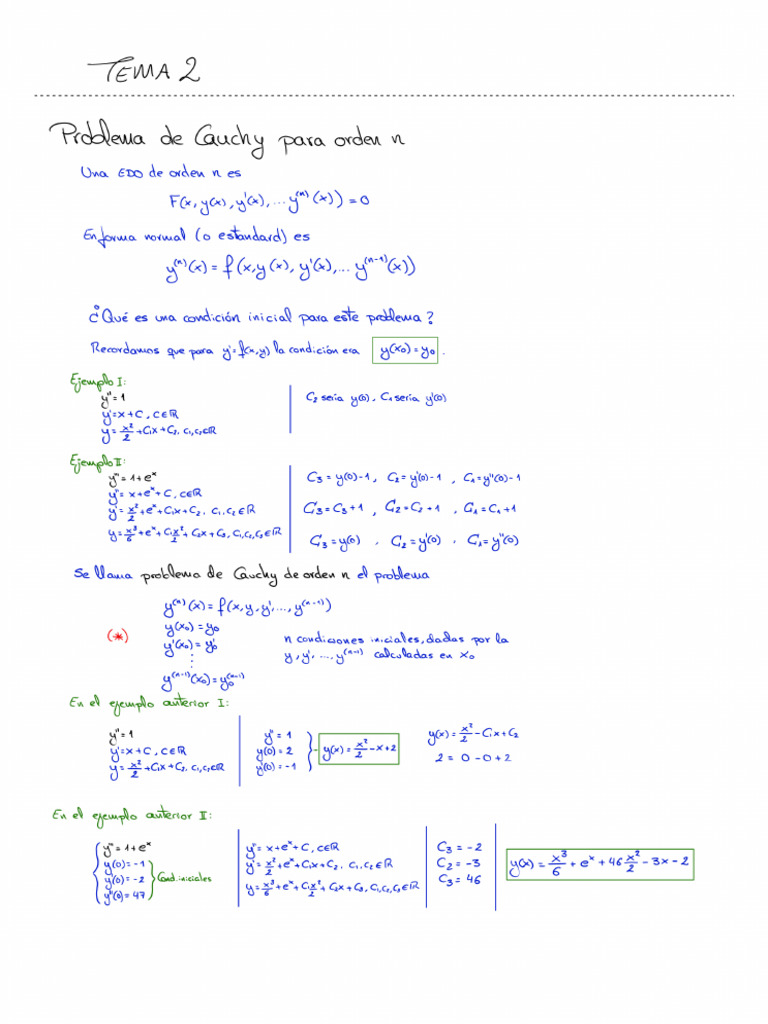 TEMA 2
Problema de Cauchy para orden n
Una EDO de orden n es
F(x, y(x), y'(x), ... y⁽ⁿ⁾(x)) = 0
En forma normal (o estandard) es
y⁽ⁿ⁾(x) = f(x, y(x), y'(x), ... y⁽ⁿ⁻¹⁾(x))
¿Qué es una condición inicial para este problema?
Recordamos que para y' = f(x,y) la condición era y(x₀) = y₀.
Ejemplo I:
y'' = 1
y' = x + C, C∈ℝ
y = x²/2 + C₁x + C₂, C₁, C₂∈ℝ
C₂ sería y(0), C₁ sería y'(0)
Ejemplo II:
y''' = 1 + eˣ
y'' = x + eˣ + C, C∈ℝ
y' = x²/2 + eˣ + C₁x + C₂, C₁, C₂∈ℝ
y = x³/6 + eˣ + C₁x²/2 + C₂x + C₃, C₁, C₂, C₃∈ℝ
C₃ = y(0) - 1, C₂ = y'(0) - 1, C₁ = y''(0) - 1
C₃ = C₃ + 1, C₂ = C₂ + 1, C₁ = C₁ + 1
C₃ = y(0), C₂ = y'(0), C₁ = y''(0)
Se llama problema de Cauchy de orden n el problema
(*)
y⁽ⁿ⁾(x) = f(x, y, y', ..., y⁽ⁿ⁻¹⁾)
y(x₀) = y₀
y'(x₀) = y'₀
⋮
y⁽ⁿ⁻¹⁾(x₀) = y₀⁽ⁿ⁻¹⁾
n condiciones iniciales, dadas por la
y, y', ..., y⁽ⁿ⁻¹⁾ calculadas en x₀
En el ejemplo anterior I:
y'' = 1
y' = x + C, C∈ℝ
y = x²/2 + C₁x + C₂, C₁, C₂∈ℝ
y'' = 1
y(0) = 2
y'(0) = -1
y(x) = x²/2 - x + 2
y(x) = x²/2 - C₁x + C₂
2 = 0 - 0 + 2
En el ejemplo anterior II:
y''' = 1 + eˣ
y(0) = -1
y'(0) = -2
y''(0) = 47
Cond. iniciales
y'' = x + eˣ + C, C∈ℝ
y' = x²/2 + eˣ + C₁x + C₂, C₁, C₂∈ℝ
y = x³/6 + eˣ + C₁x²/2 + C₂x + C₃, C₁, C₂, C₃∈ℝ
C₃ = -2
C₂ = -3
C₃ = 46
y(x) = x³/6 + eˣ + 46 x²/2 - 3x - 2